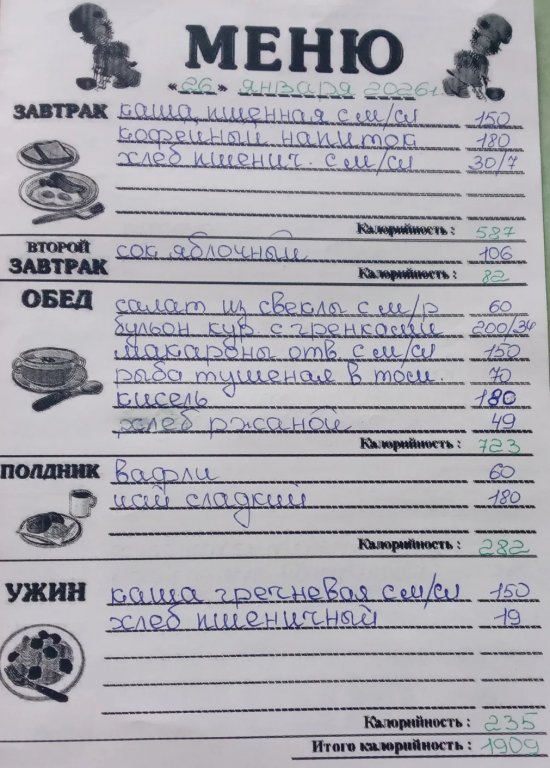 МЕНЮ
«26» января 2026г
ЗАВТРАК каша пшенная с м/сл 150
кофейный напиток 180
хлеб пшенич. с м/сл 30/7
Калорийность: 587
ВТОРОЙ ЗАВТРАК сок яблочный 106
Калорийность: 82
ОБЕД салат из свеклы с м/р 60
бульон кур. с гренками 200/34
макароны отв. с м/сл 150
рыба тушеная в том. 70
кисель 180
хлеб ржаной 49
Калорийность: 723
ПОЛДНИК вафли 60
чай сладкий 180
Калорийность: 282
УЖИН каша гречневая с м/сл 150
хлеб пшеничный 19
Калорийность: 235
Итого калорийность: 1909